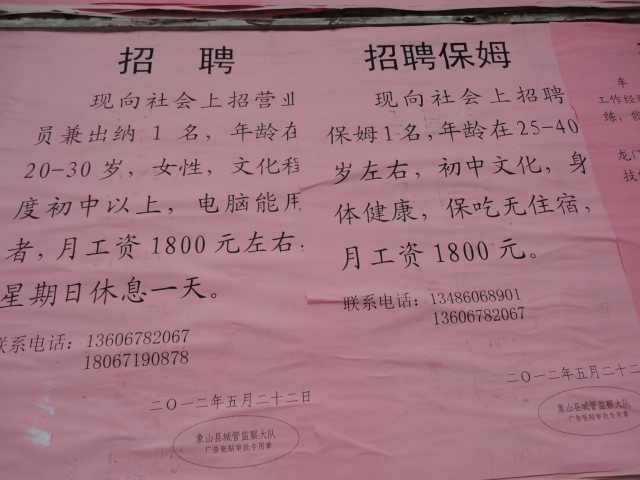 招 聘
现向社会上招营业
员兼出纳 1 名，年龄在
20-30 岁，女性，文化程
度初中以上，电脑能用
者，月工资 1800 元左右，
星期日休息一天。
联系电话：13606782067
18067190878
二〇一二年五月二十二日
象山县城管监察大队
广告张贴审批专用章
招聘保姆
现向社会上招聘
保姆 1 名，年龄在 25-40
岁左右，初中文化，身
体健康，保吃无住宿，
月工资 1800 元。
联系电话：13486068901
13606782067
二〇一二年五月二十二
象山县城管监察大队
广告张贴审批专用章
车
工作经验
练，能
龙门
技